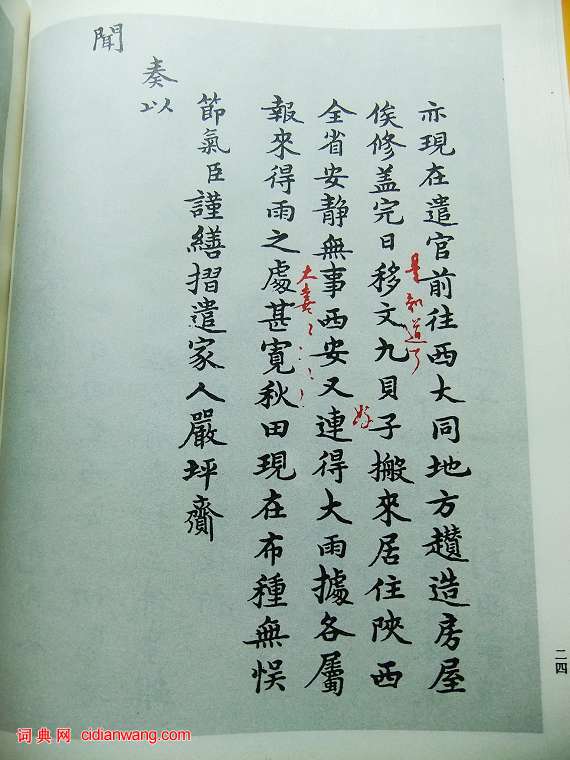 亦現在遣官前往西大同地方趲造房屋
是知道了
俟修盖完日移文九貝子搬來居住陝西
好
全省安静無事西安又連得大雨據各屬
大喜
報來得雨之處甚寛秋田現在布種無悮
節氣臣謹繕摺遣家人嚴坪齎
奏以
聞
二四
词典网 cidianwang.com